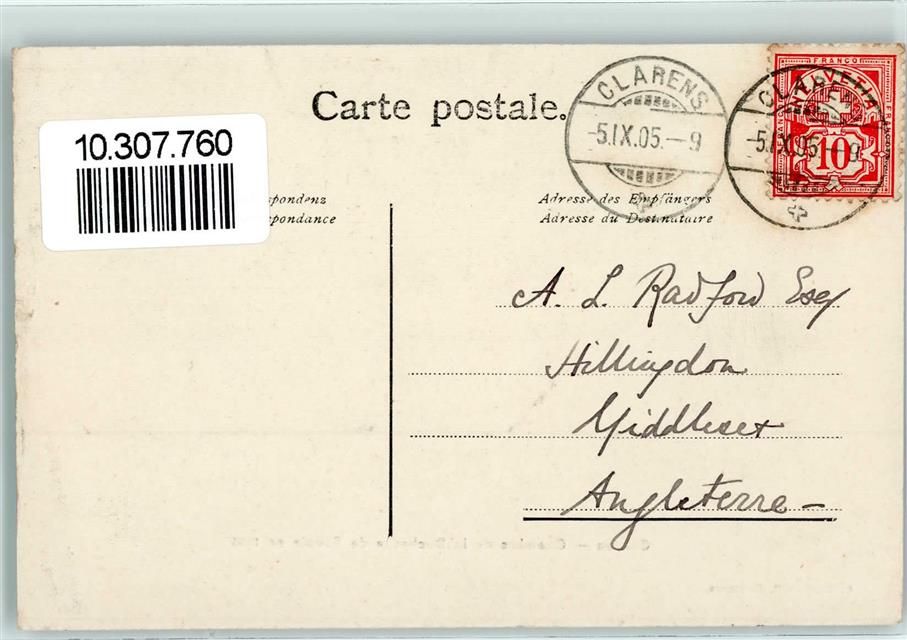 Carte postale.
CLARENS
-5.IX.05.-9
CLARENS
-5.IX.05.-9
FRANCO
HELVETIA
FRANCO
10
10.307.760
spondenz
spondance
Adresse des Empfängers
Adresse du Destinataire
A. L. Radford Esq
Hillingdon
Middlesex
Angleterre –